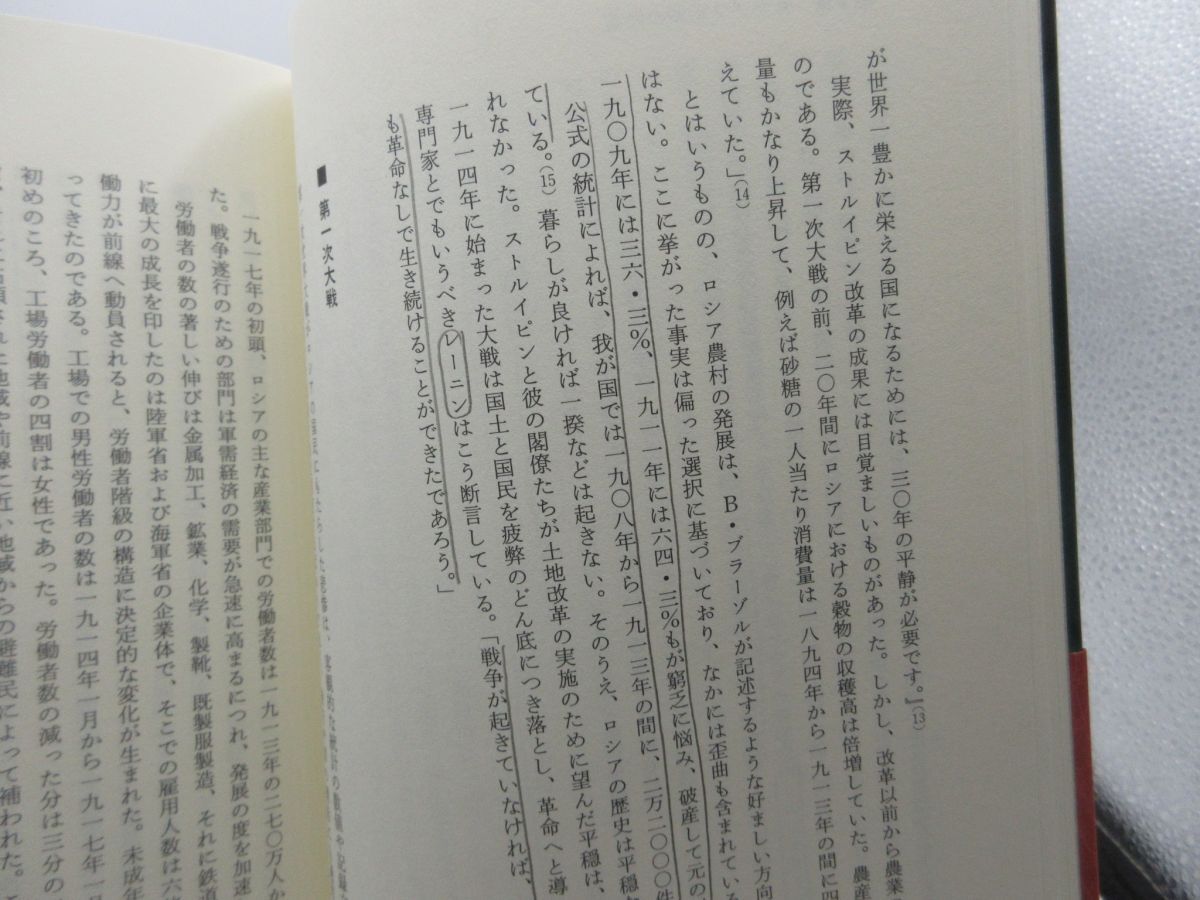 が世界一豊かに栄える国になるためには、三〇年の平静が必要です。』(13)
実際、ストルイピン改革の成果には目覚ましいものがあった。しかし、改革以前から農業
のである。第一次大戦の前、二〇年間にロシアにおける穀物の収穫高は倍増していた。農産
量もかなり上昇して、例えば砂糖の一人当たり消費量は一八九四年から一九一三年の間に四
えていた。」(14)
とはいうものの、ロシア農村の発展は、B・ブラーゾルが記述するような好ましい方向
はない。ここに挙がった事実は偏った選択に基づいており、なかには歪曲も含まれている
一九〇九年には三六・三%、一九一一年には六四・三%もが窮乏に悩み、破産して元の
公式の統計によれば、我が国では一九〇八年から一九一三年の間に、二万二〇〇〇件
ている。(15)暮らしが良ければ一揆などは起きない。そのうえ、ロシアの歴史は平穏
れなかった。ストルイピンと彼の閣僚たちが土地改革の実施のために望んだ平穏は、
一九一四年に始まった大戦は国土と国民を疲弊のどん底につき落とし、革命へと導
専門家とでもいうべきレーニンはこう断言している。「戦争が起きていなければ、
も革命なしで生き続けることができたであろう。」
■ 第一次大戦
一九一七年の初頭、ロシアの主な産業部門での労働者数は一九一三年の二七〇万人か
た。戦争遂行のための部門は軍需経済の需要が急速に高まるにつれ、発展の度を加速
労働者の数の著しい伸びは金属加工、鉱業、化学、製靴、既製服製造、それに鉄道
に最大の成長を印したのは陸軍省および海軍省の企業体で、そこでの雇用人数は六
働力が前線へ動員されると、労働者階級の構造に決定的な変化が生まれた。未成年
ってきたのである。工場での男性労働者の数は一九一四年一月から一九一七年一
初めのころ、工場労働者の四割は女性であった。労働者数の減った分は三分の
地域や前線に近い地域からの避難民によって補われた。